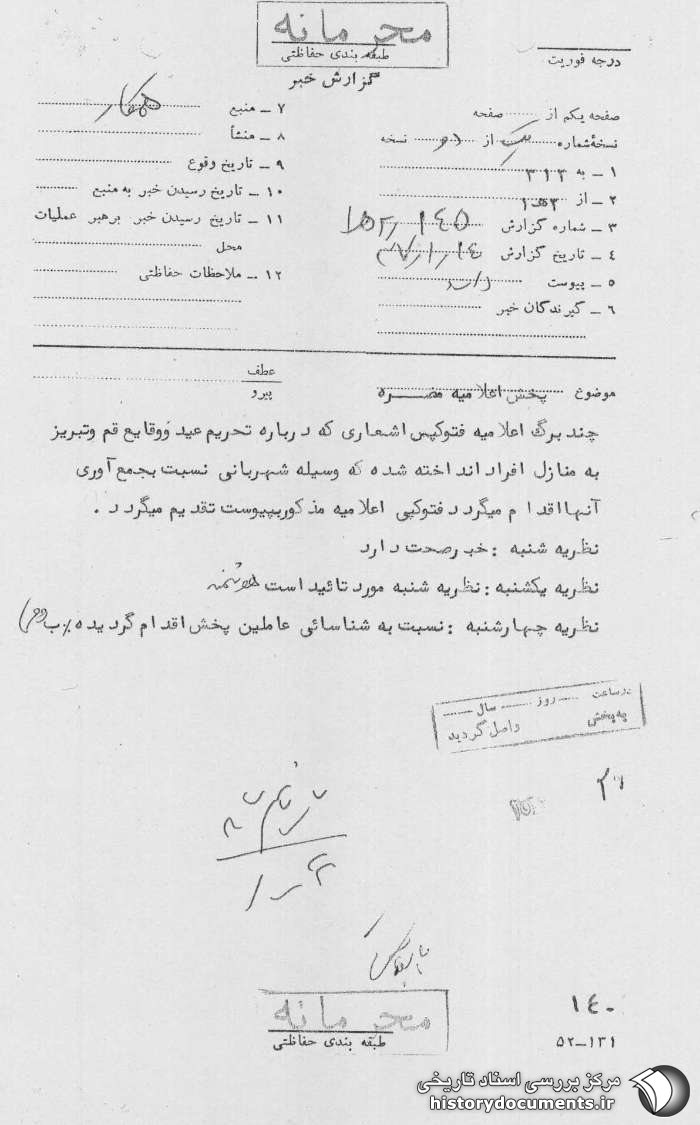 محرمانه
طبقه بندی حفاظتی
گزارش خبر
درجه فوریت
صفحه یکم از صفحه
نسخهٔ شماره یک از دو نسخه
۱ – به ۳۱۲
۲ – از
۳ – شماره گزارش
۴ – تاریخ گزارش
۵ – پیوست دارد
۶ – گیرندگان خبر
۷ – منبع همکار
۸ – منشأ
۹ – تاریخ وقوع
۱۰ – تاریخ رسیدن خبر به منبع
۱۱ – تاریخ رسیدن خبر برهبر عملیات
محل
۱۲ – ملاحظات حفاظتی
موضوع پخش اعلامیه مضره
عطف
پیرو
چند برگ اعلامیه فتوکپی اشعاری که درباره تحریم عید ووقایع قم وتبریز
به منازل افراد انداخته شده که وسیله شهربانی نسبت بجمع آوری
آنها اقدام میگردد فتوکپی اعلامیه مذکور بپیوست تقدیم میگردد .
نظریه شنبه : خبر صحت دارد
نظریه یکشنبه : نظریه شنبه مورد تائید است
نظریه چهارشنبه : نسبت به شناسائی عاملین پخش اقدام گردیده
درساعت روز سال
به بخش واصل گردید
محرمانه
طبقه بندی حفاظتی
۱۴۰
۵۲–۱۳۱
مرکز بررسی اسناد تاریخی
historydocuments.ir